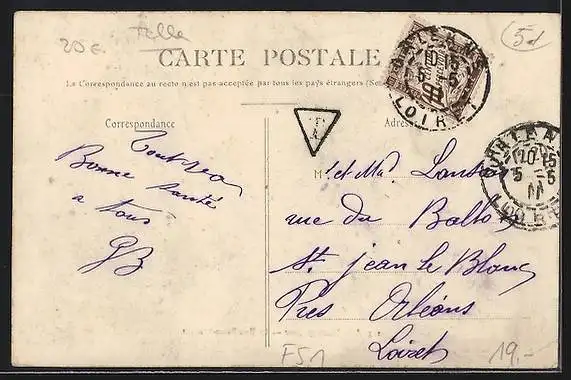 20 €
Talla
5d
CARTE POSTALE
La Correspondance au recto n'est pas acceptée par tous les pays étrangers (Se
ORLEANS
10 15
5 - 5
11
LOIRET
T
Correspondance
Adres
Tout va
Bonne santé
a tous
GB
M
et Md.
rue du
St. jean le Blanc
Près Orléans
Loiret
ORLEANS
10 15
5 - 5
11
LOIRE
FS1
19.-